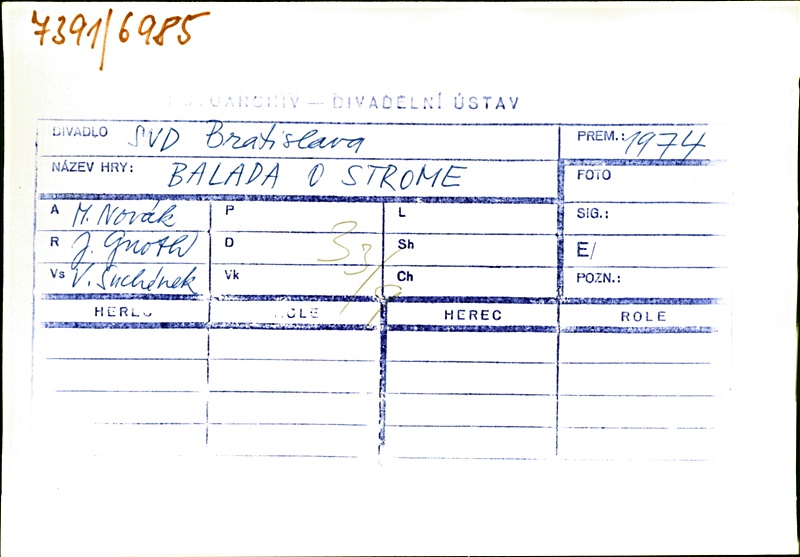 7391/6985
FOTOARCHIV — DIVADELNÍ ÚSTAV
DIVADLO SVD Bratislava PREM.: 1974
NÁZEV HRY: BALADA O STROME FOTO
A M. Novák P L SIG.:
R J. Gnoth D Sh E/
Vs V. Suchánek Vk Ch POZN.:
HEREC ROLE HEREC ROLE